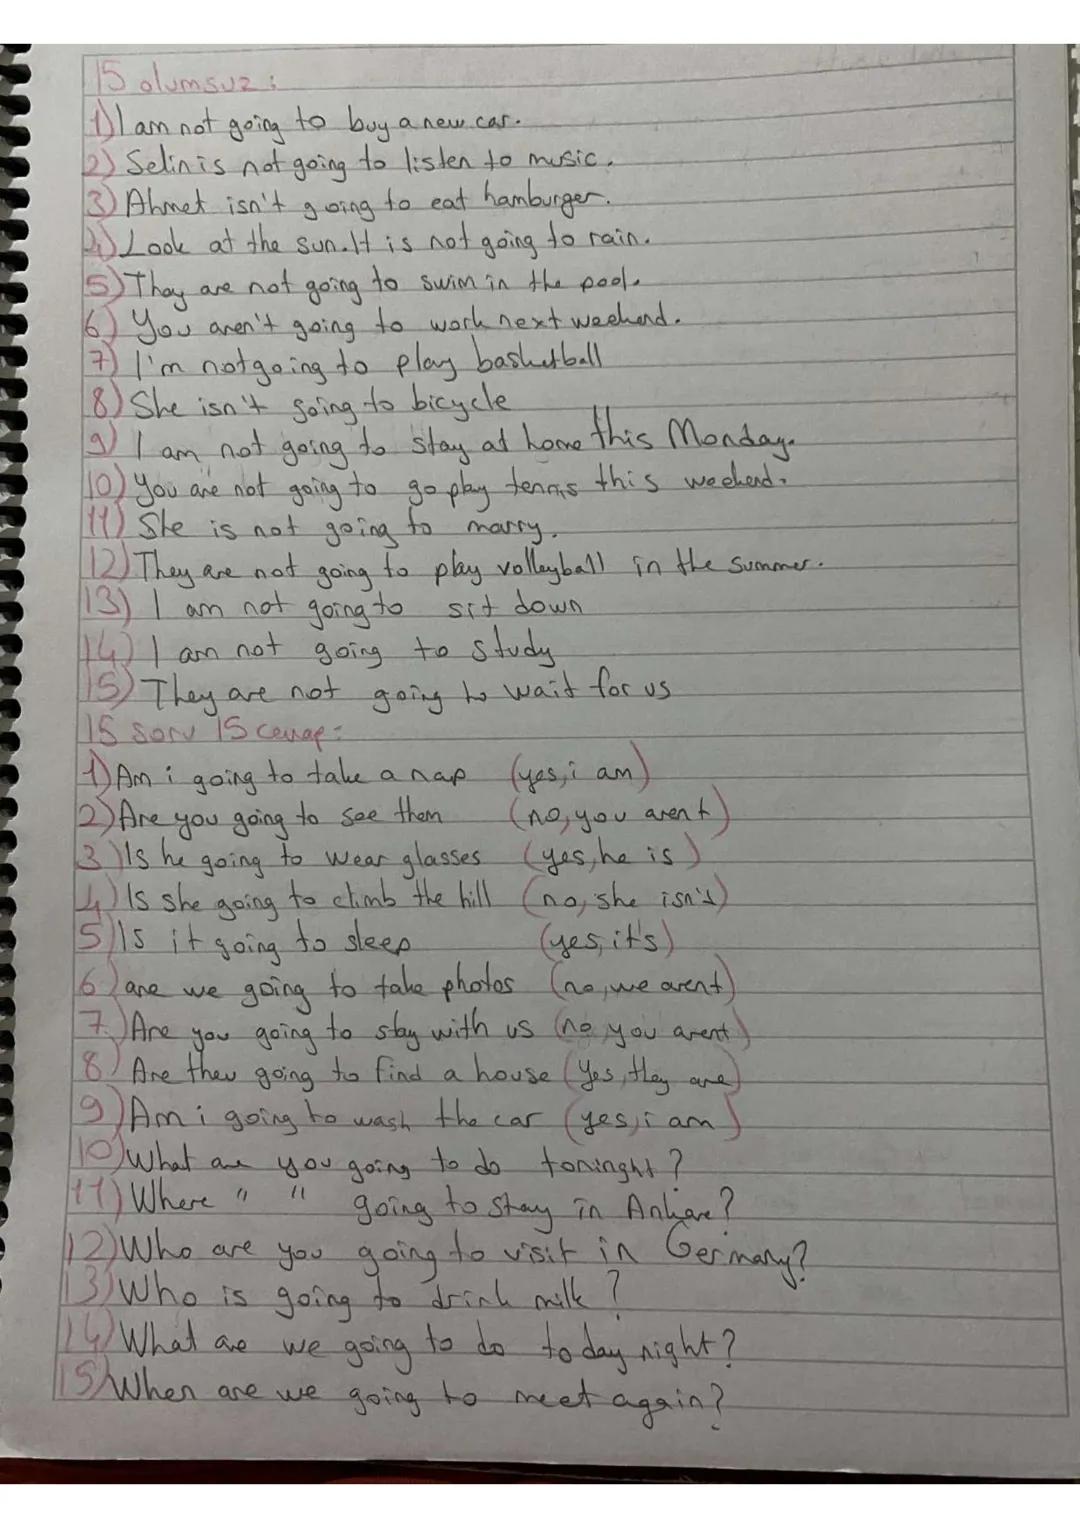 15 olumsuz :
1) I am not going to buy a new car.
2) Selin is not going to listen to music.
3) Ahmet isn't going to eat hamburger.
4) Look at the sun. It is not going to rain.
5) Thay are not going to swim in the pool.
6) You aren't going to work next weekend.
7) I'm not going to play basketball
8) She isn't going to bicycle
9) I am not going to stay at home this Monday.
10) You are not going to go play tennis this weekend.
11) She is not going to marry.
12) They are not going to play volleyball in the summer.
13) I am not going to sit down
14) I am not going to study
15) They are not going to wait for us
15 soru 15 cevap :
1) Am i going to take a nap (yes, i am)
2) Are you going to see them (no, you arent)
3) Is he going to wear glasses (yes, he is)
4) Is she going to climb the hill (no, she isn't)
5) Is it going to sleep (yes, it's)
6) are we going to take photos (no, we arent)
7) Are you going to stay with us (no you arent)
8) Are they going to find a house (Yes, they are)
9) Am i going to wash the car (yes, i am)
10) What are you going to do toninght ?
11) Where " " going to stay in Ankara?
12) Who are you going to visit in Germany?
13) Who is going to drink milk ?
14) What are we going to do today night?
15) When are we going to meet again?